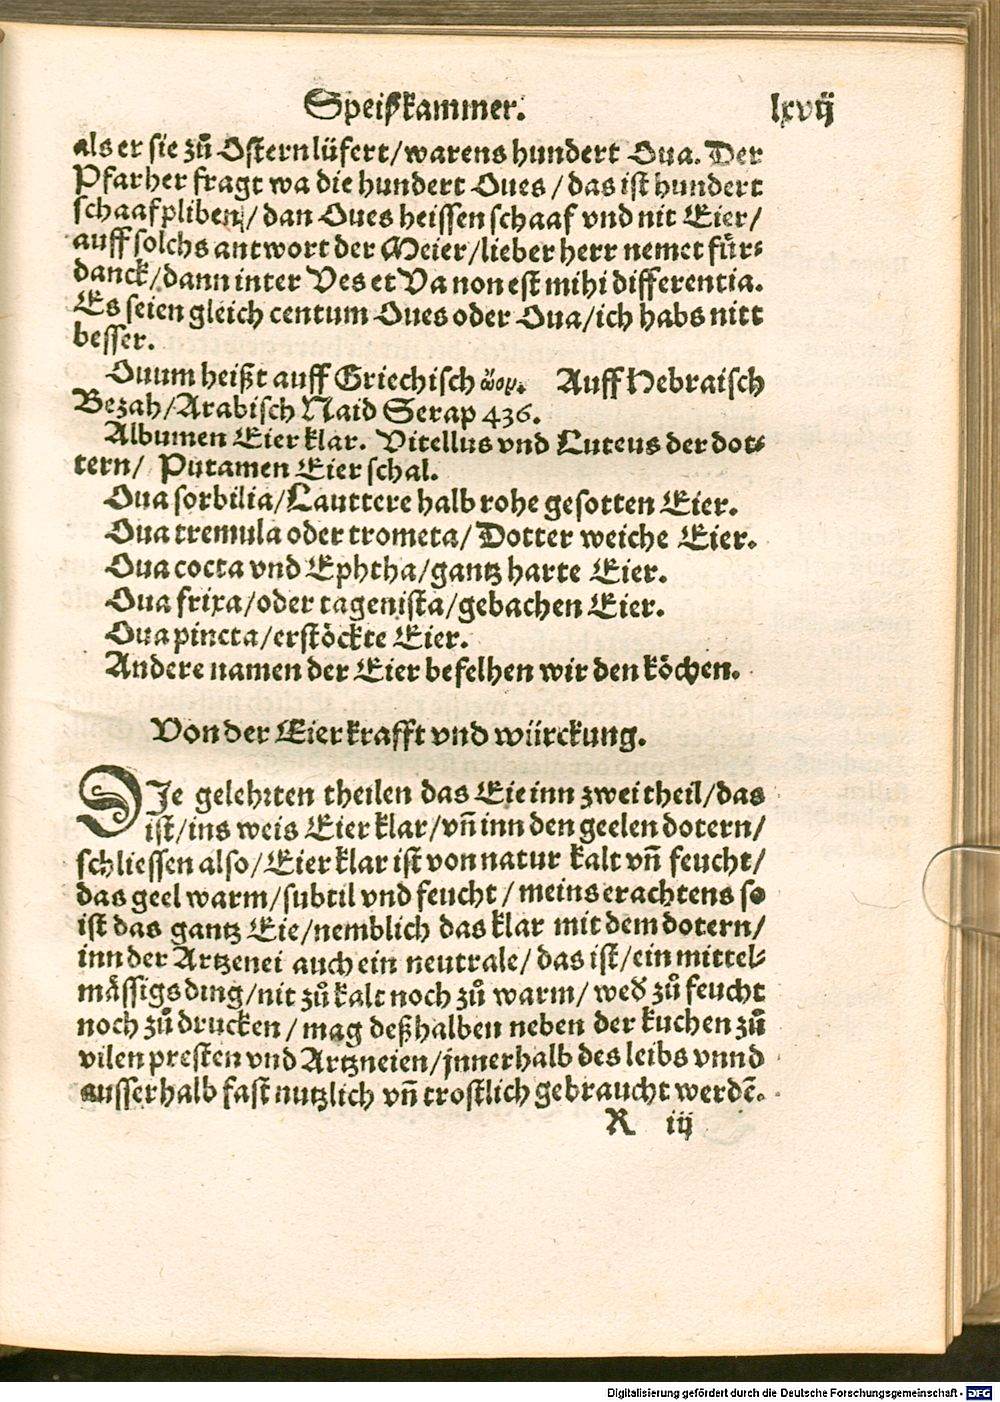 Speißkammer. lxvij
als er sie zů Ostern lüfert/warens hundert Oua. Der
Pfarher fragt wa die hundert Oues/das ist hundert
schaaf pliben/dan Oues heissen schaaf vnd nit Eier/
auff solchs antwort der Meier/lieber herr nemet für⸗
danck/dann inter Ves et Va non est mihi differentia.
Es seien gleich centum Oues oder Oua/ich habs nitt
besser.
Ouum heißt auff Griechisch ὤον. Auff Hebraisch
Bezah/Arabisch Naid Serap 436.
Albumen Eier klar. Vitellus vnd Luteus der dot⸗
tern/ Putamen Eier schal.
Oua sorbilia/Lauttere halb rohe gesotten Eier.
Oua tremula oder trometa/Dotter weiche Eier.
Oua cocta vnd Ephtha/gantz harte Eier.
Oua frixa/oder tagenista/gebachen Eier.
Oua pincta/erstöckte Eier.
Andere namen der Eier befelhen wir den köchen.
Von der Eier krafft vnd würckung.
DIe gelehrten theilen das Eie inn zwei theil/das
ist/ins weis Eier klar/vñ inn den geelen dotern/
schliessen also/Eier klar ist von natur kalt vñ feucht/
das geel warm/subtil vnd feucht/meins erachtens so
ist das gantz Eie/nemblich das klar mit dem dotern/
inn der Artzenei auch ein neutrale/das ist/ein mittel⸗
mässigs ding/nit zů kalt noch zů warm/wed zů feucht
noch zů drucken/mag deßhalben neben der kuchen zů
vilen presten vnd Artzneien/jnnerhalb des leibs vnnd
ausserhalb fast nutzlich vñ trostlich gebraucht werdē.
R iij
Digitalisierung gefördert durch die Deutsche Forschungsgemeinschaft - DFG